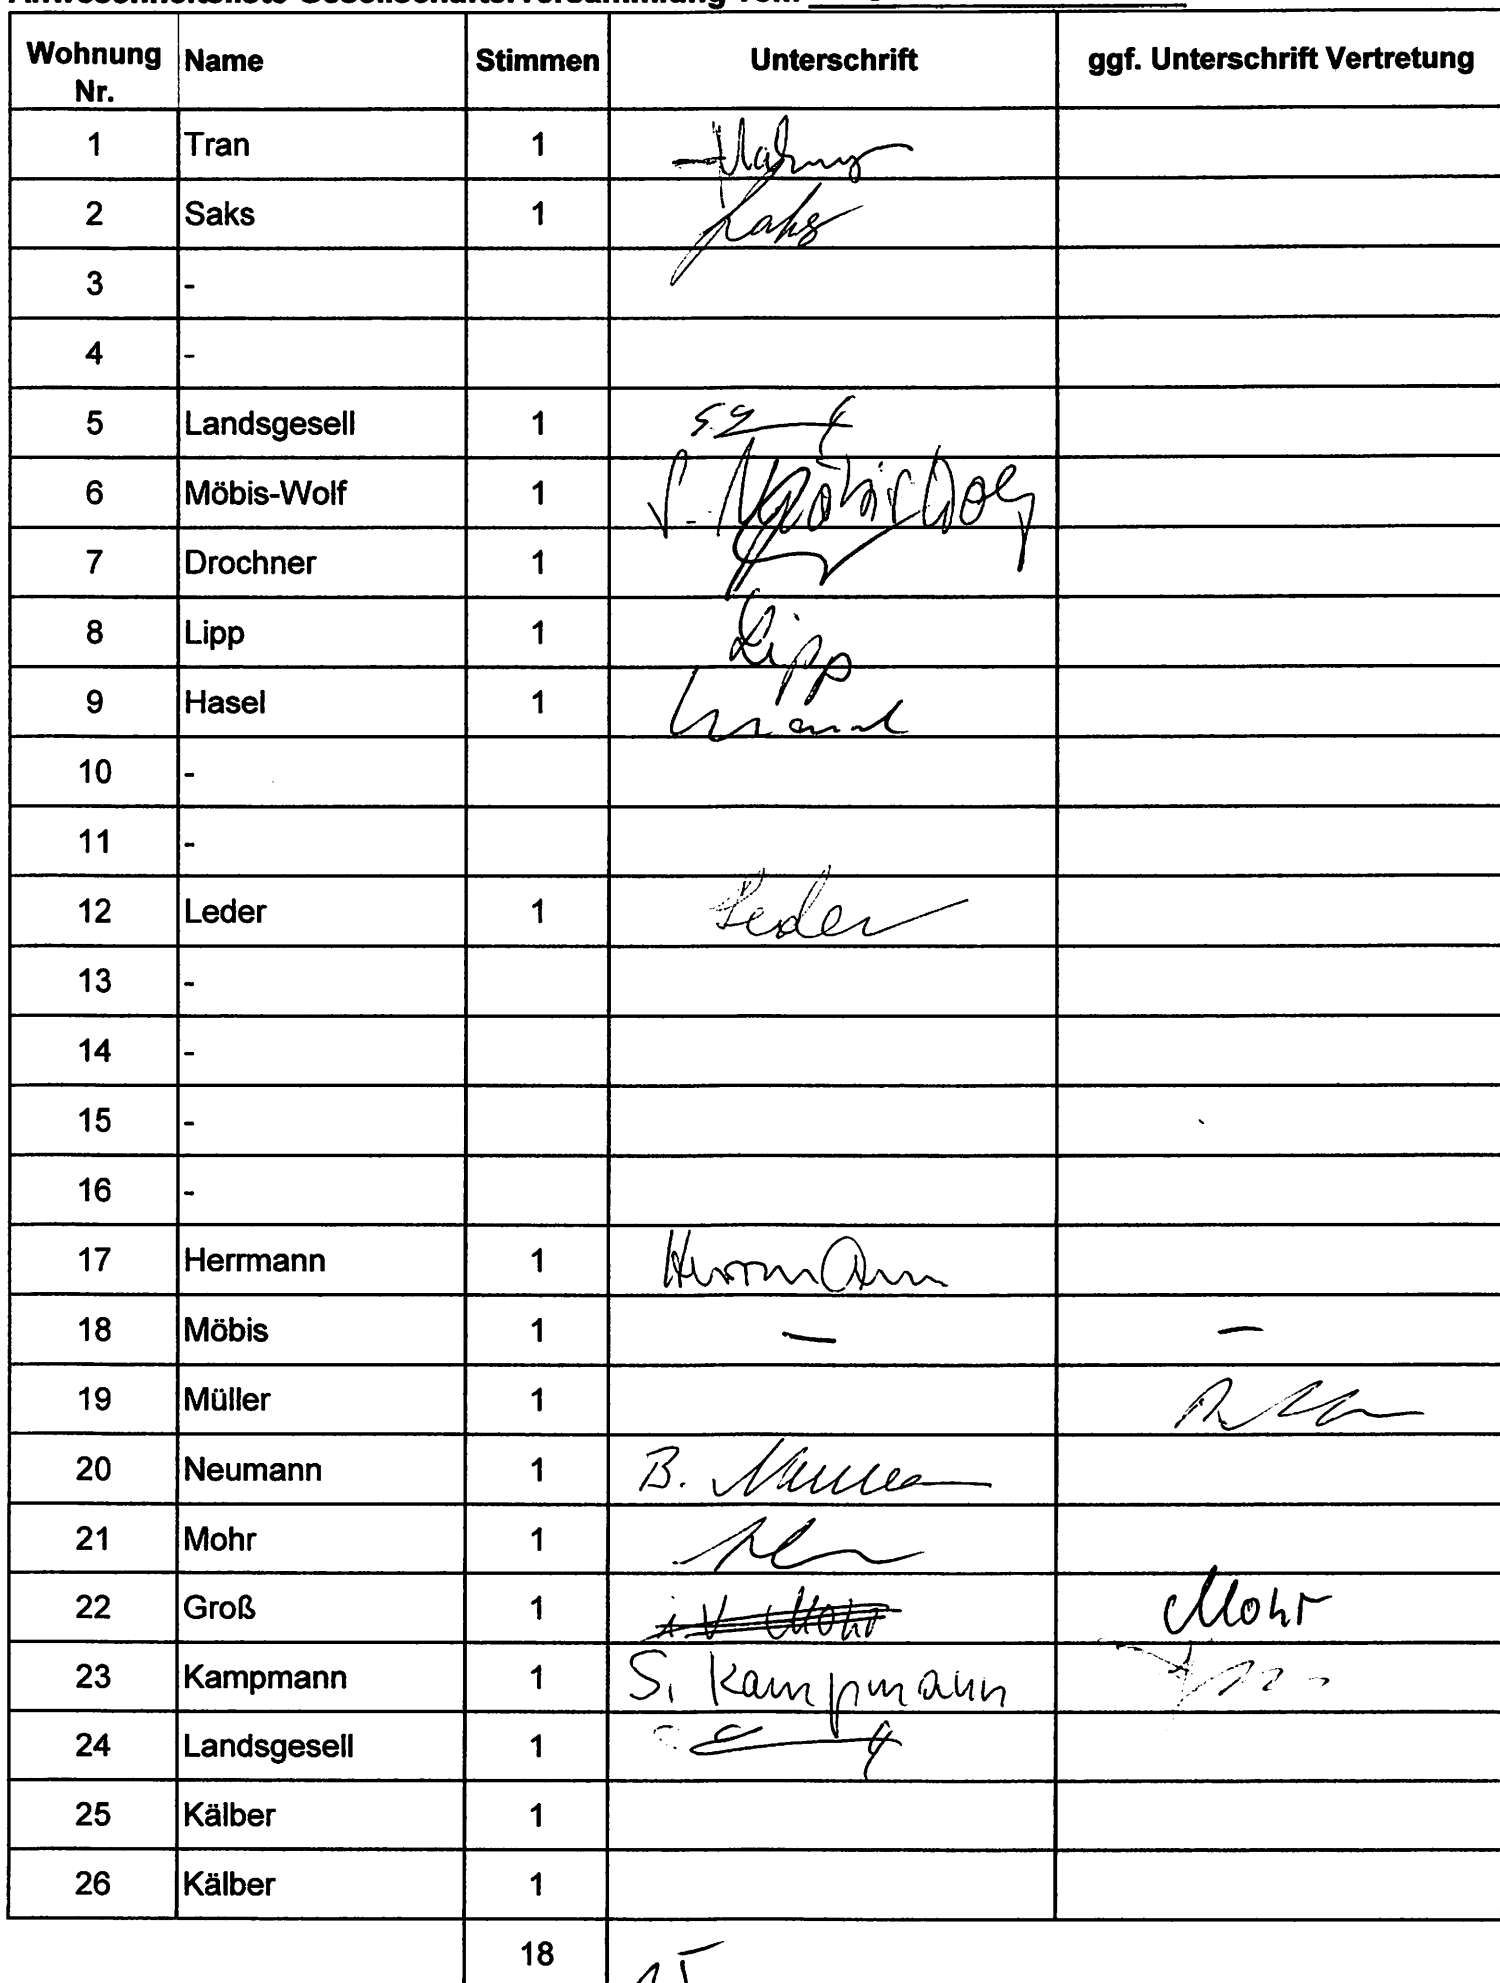 Anwesenheitsliste Gesellschafterversammlung vom
Wohnung Nr. Name Stimmen Unterschrift ggf. Unterschrift Vertretung
1 Tran 1
2 Saks 1 Saks
3 -
4 -
5 Landsgesell 1
6 Möbis-Wolf 1 Möbis-Wolf
7 Drochner 1
8 Lipp 1 Lipp
9 Hasel 1
10 -
11 -
12 Leder 1 Leder
13 -
14 -
15 -
16 -
17 Herrmann 1 Herrmann
18 Möbis 1 – –
19 Müller 1
20 Neumann 1 B. Neumann
21 Mohr 1
22 Groß 1 i.V Mohr Mohr
23 Kampmann 1 S. Kampmann
24 Landsgesell 1
25 Kälber 1
26 Kälber 1
18 15